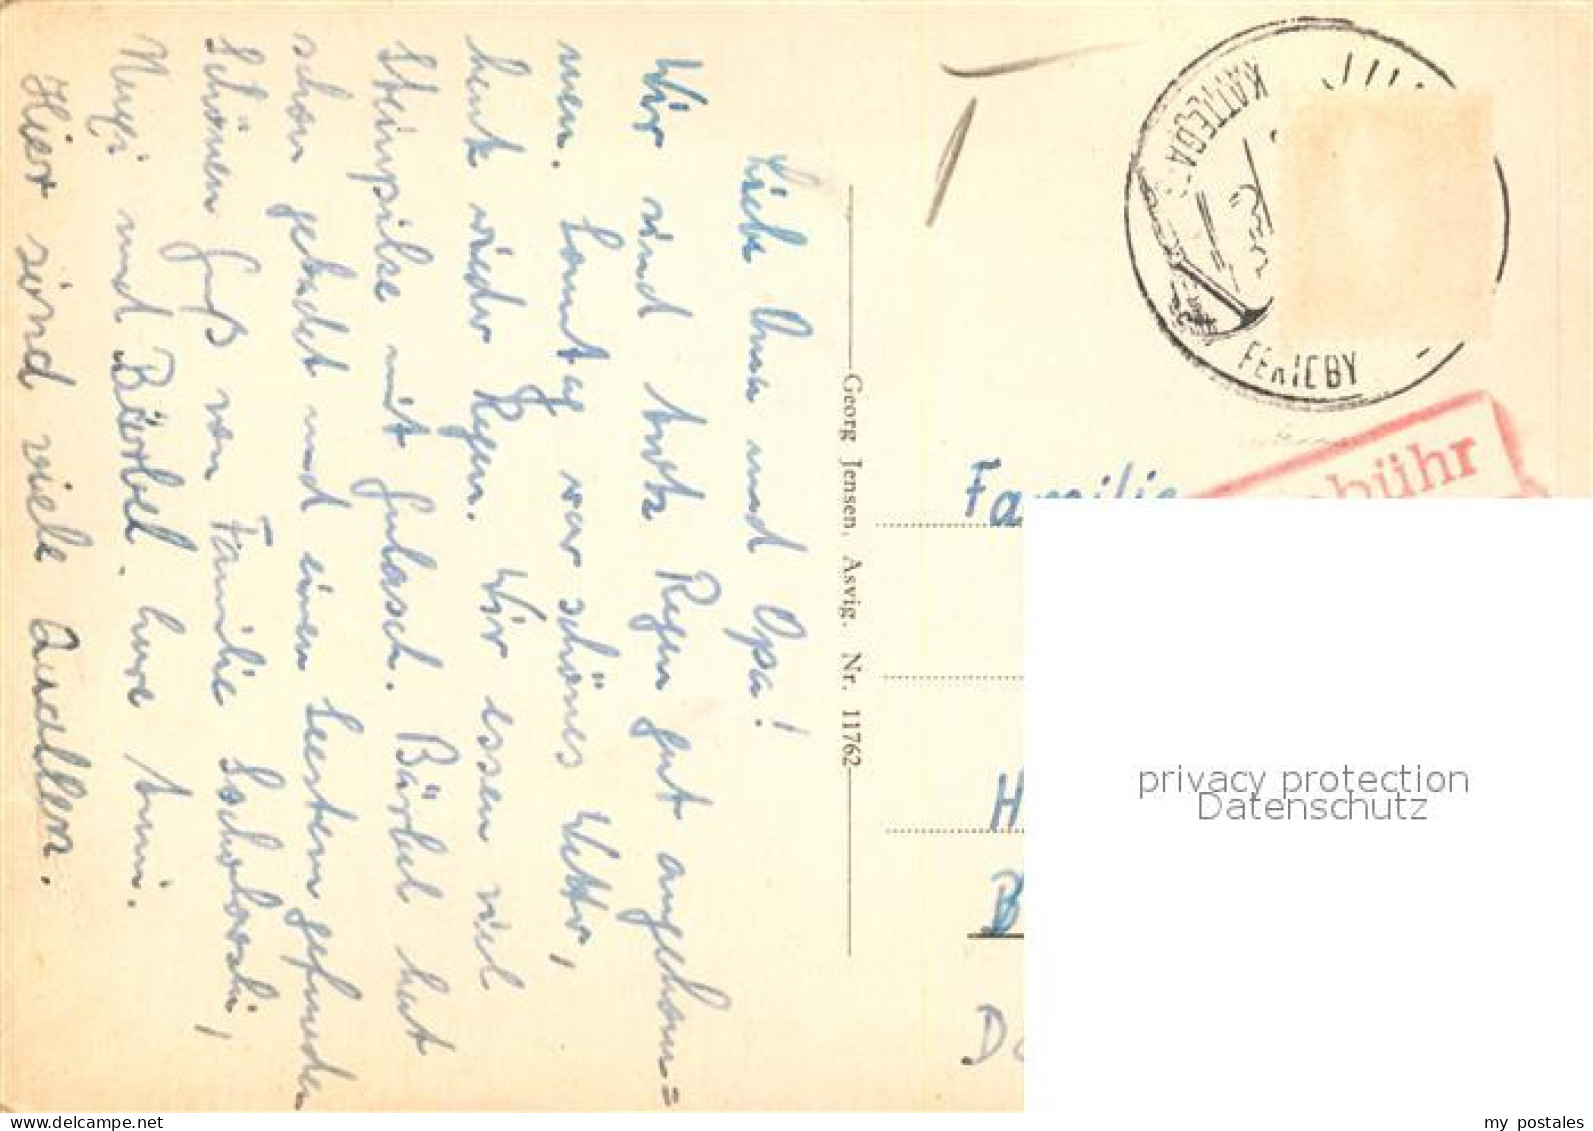 Liebe Oma und Opa!
Wir sind trotz Regen gut angekom=
men. Sonntag war schönes Wetter,
heute wieder Regen. Wir essen viel
Steinpilse mit Gulasch. Bärbel hat
schon gebadet und einen Seestern gefunden
Schönen Gruß von Familie
und Bärbel.
Hier sind viele Quallen.
Georg Jensen, Asvig. Nr. 11762
KATTEGAT
FERIEBY
bühr
Familie
H
B
D
privacy protection
Datenschutz
my postales